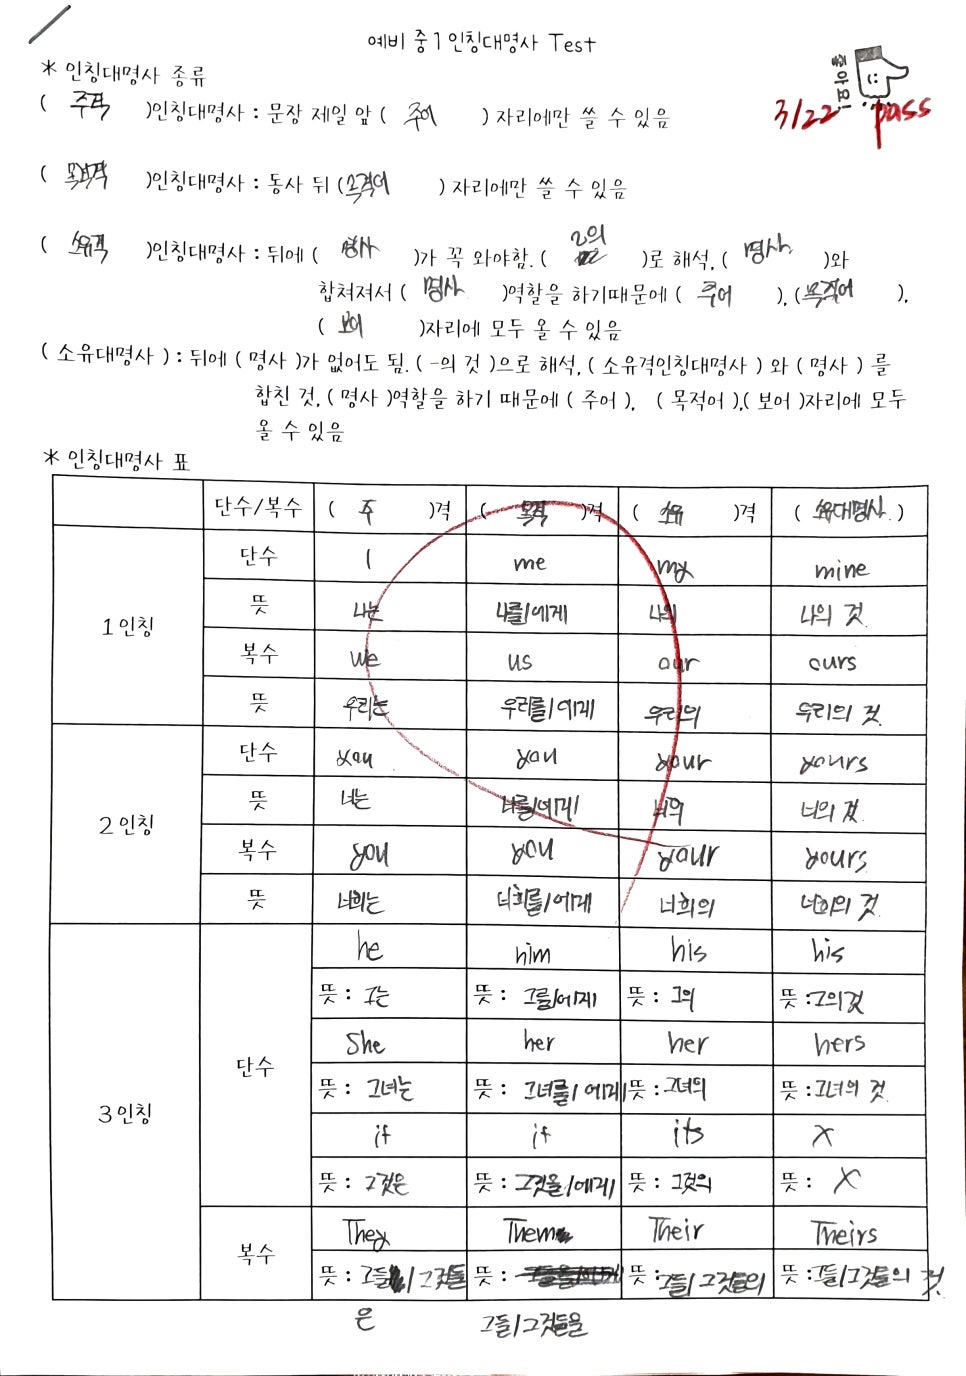 예비 중1 인칭대명사 Test
좋아요!
3/22 pass
* 인칭대명사 종류
( 주격 )인칭대명사 : 문장 제일 앞 ( 주어 ) 자리에만 쓸 수 있음
( 목적격 )인칭대명사 : 동사 뒤 ( 목적어 ) 자리에만 쓸 수 있음
( 소유격 )인칭대명사 : 뒤에 ( 명사 )가 꼭 와야함. ( ~의 )로 해석, ( 명사 )와
합쳐져서 ( 명사 )역할을 하기때문에 ( 주어 ), ( 목적어 ),
( 보어 )자리에 모두 올 수 있음
( 소유대명사 ) : 뒤에 ( 명사 )가 없어도 됨. ( -의 것 )으로 해석, ( 소유격인칭대명사 ) 와 ( 명사 ) 를
합친 것, ( 명사 )역할을 하기 때문에 ( 주어 ), ( 목적어 ),( 보어 )자리에 모두
올 수 있음
* 인칭대명사 표
단수/복수 ( 주 )격 ( 목적 )격 ( 소유 )격 ( 소유대명사 )
1인칭
단수 I me my mine
뜻 나는 나를/에게 나의 나의 것
복수 we us our ours
뜻 우리는 우리를/에게 우리의 우리의 것
2인칭
단수 you you your yours
뜻 너는 너를/에게 너의 너의 것
복수 you you your yours
뜻 너희는 너희를/에게 너희의 너희의 것
3인칭
단수
he him his his
뜻 : 그는 뜻 : 그를/에게 뜻 : 그의 뜻 : 그의것
She her her hers
뜻 : 그녀는 뜻 : 그녀를/에게 뜻 : 그녀의 뜻 : 그녀의 것
it it its X
뜻 : 그것은 뜻 : 그것을/에게 뜻 : 그것의 뜻 : X
복수
They Them Their Theirs
뜻 : 그들/그것들 뜻 : 뜻 : 그들/그것들의 뜻 : 그들/그것들의 것
은 그들/그것들을